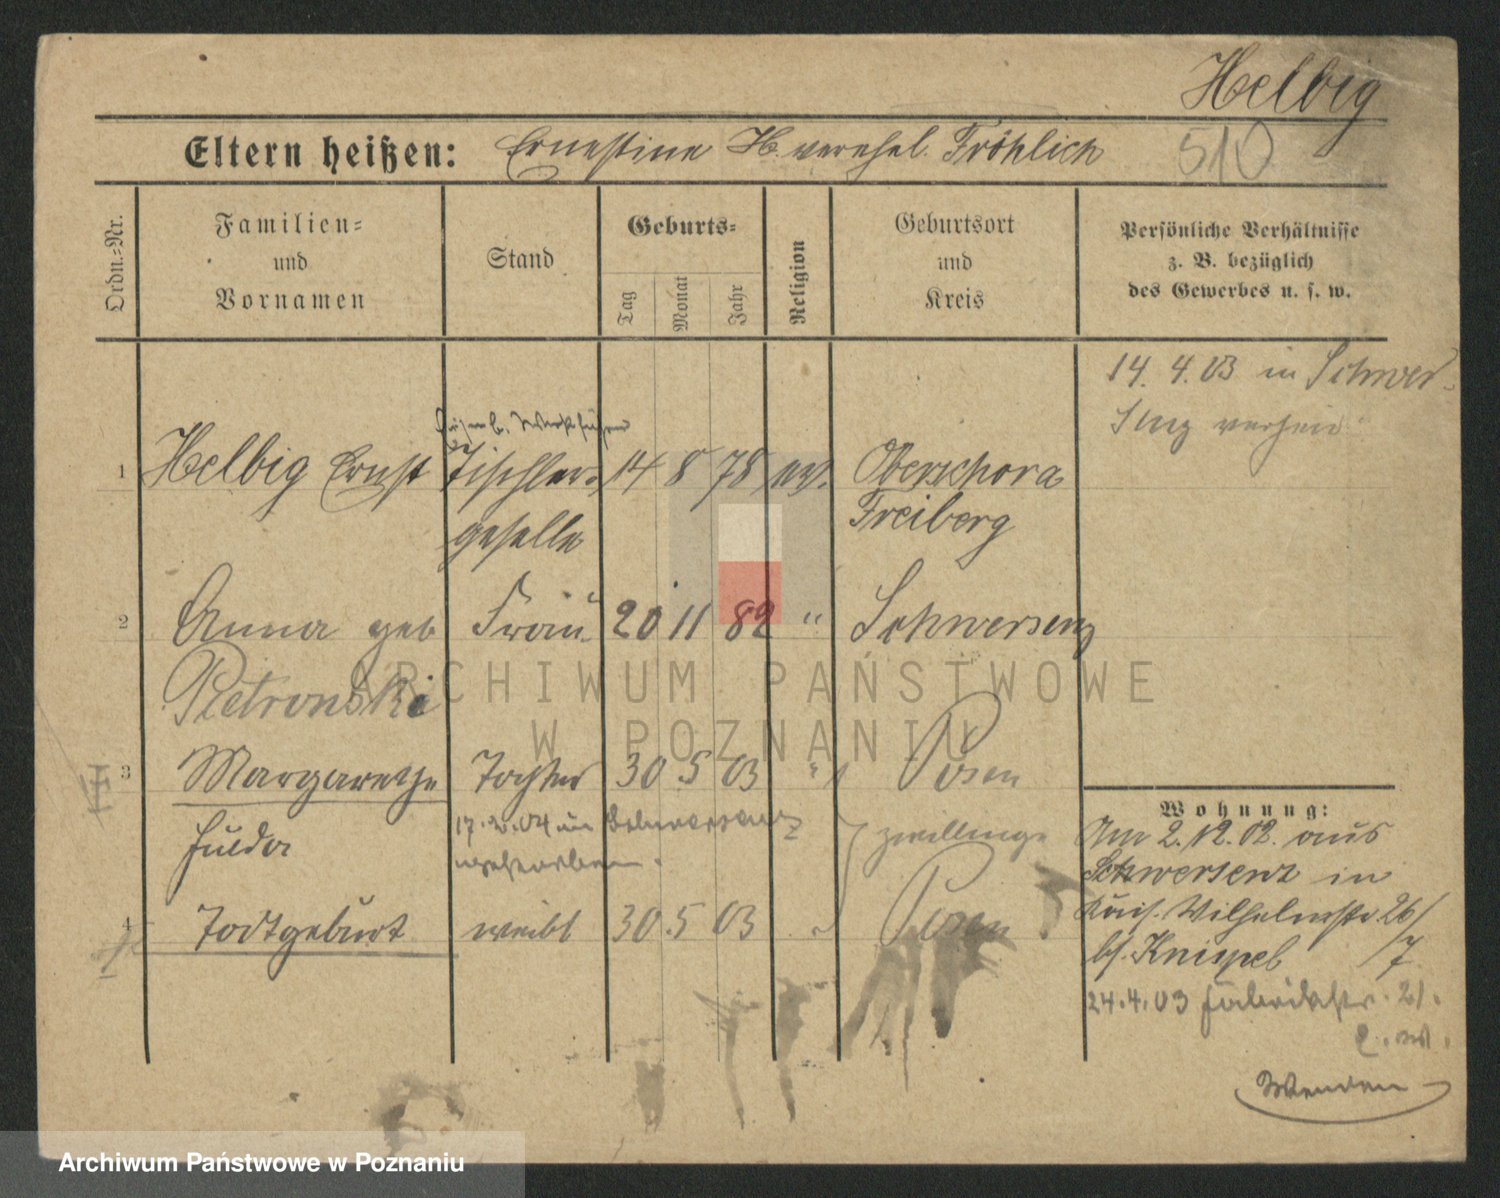 Helbig
510
Eltern heißen: Ernestine H. verehel. Fröhlich
Ordn.=Nr.
Familien=
und
Vornamen
Stand
Geburts=
Tag
Monat
Jahr
Religion
Geburtsort
und
Kreis
Persönliche Verhältnisse
z. B. bezüglich
des Gewerbes u. s. w.
14. 4. 03 in Schwer-
senz verheir.
1 Helbig Ernst Tischler- 14 8 78 ev. Oberschora
geselle Freiberg
2 Anna geb Frau 20 11 82 " Schwersenz
Pietrowski
3 Margarethe Tochter 30 5 03 " Posen
Hulda
17. 2. 04 in Schwersenz
gestorben.
zwillinge
4 Todtgeburt weibl 30. 5 03 " Posen
Wohnung:
Am 2. 12. 02. aus
Schwersenz in
Kais. Wilhelmstr 26/
7
bf. Knispel
24. 4. 03 Fabrikstr. 21.
Wenden
ARCHIWUM PAŃSTWOWE
W POZNANIU
Archiwum Państwowe w Poznaniu